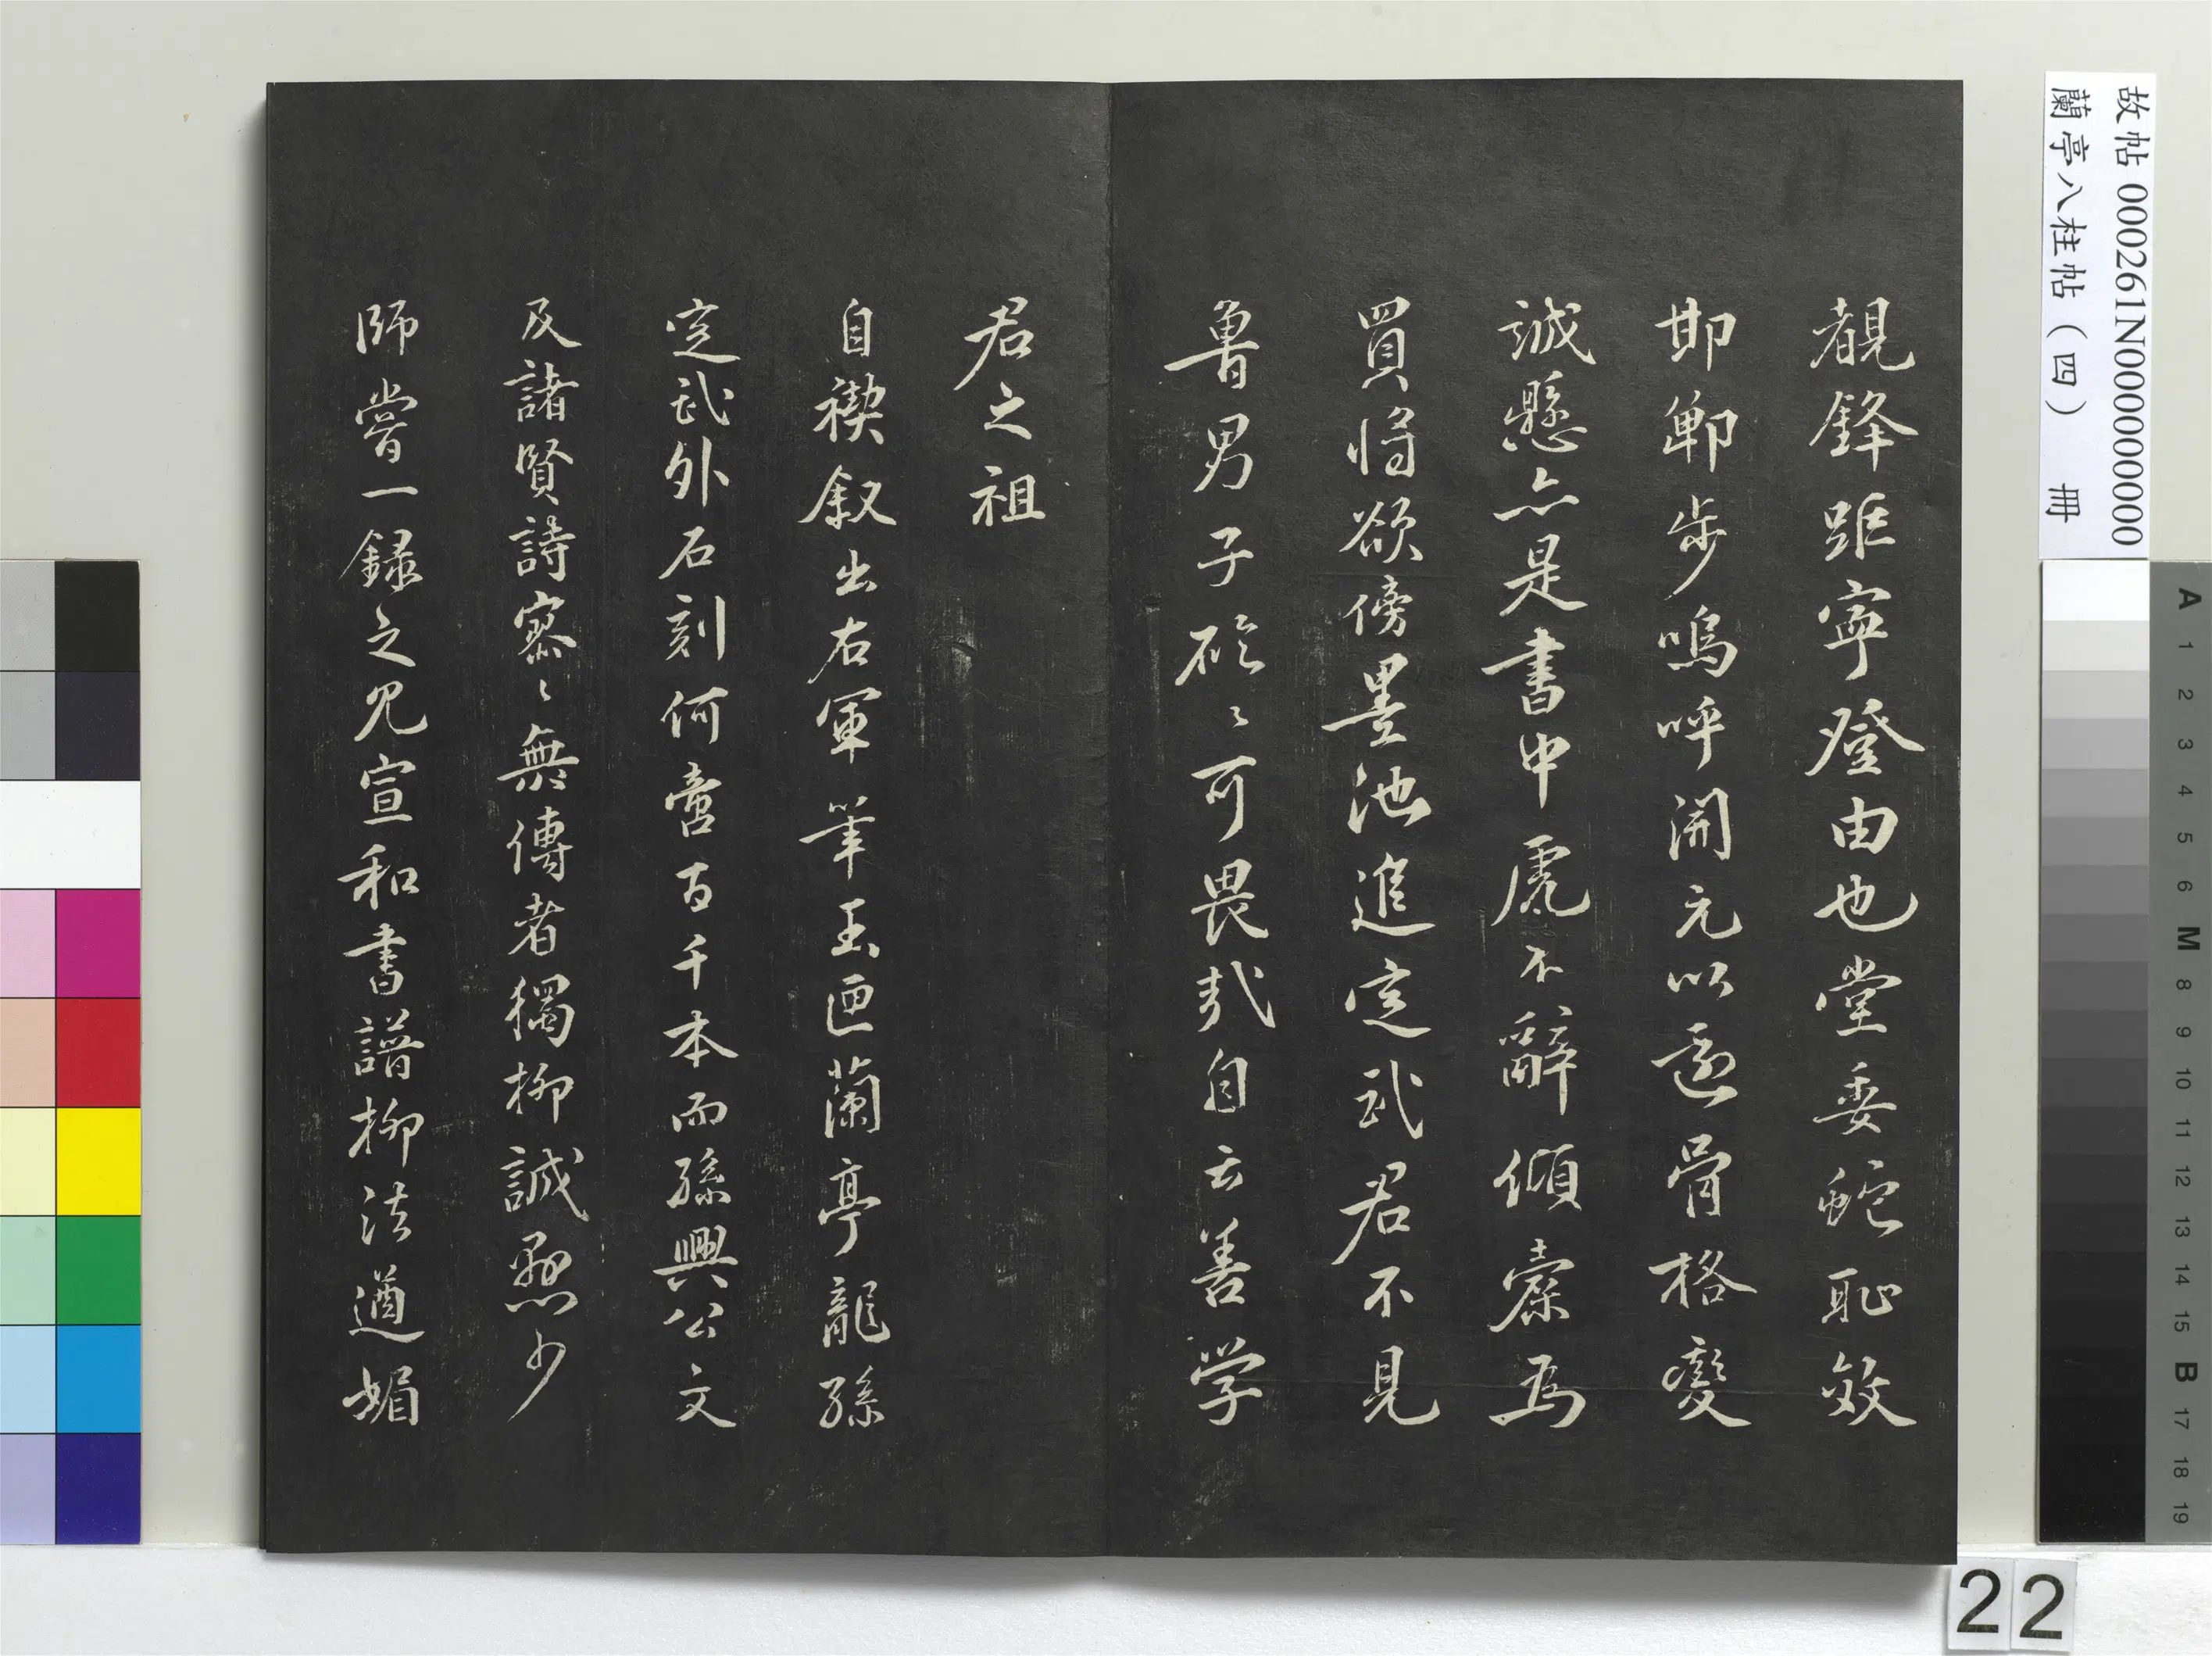 覩鋒距寧登由也堂委蛇恥效
邯鄲步嗚呼開元以還骨格變
誠懸亦是書中虎不辭傾橐為
買將欲傍墨池進定武君不見
魯男子硁〻可畏哉自云善学
君之祖
自禊叙出右軍筆玉匣蘭亭龍孫
定武外石刻何啻百千本而孫興公文
及諸賢詩寥〻無傳者獨柳誠懸少
師嘗一録之見宣和書譜柳法遒媚
故帖 000261N000000000
蘭亭八柱帖（四） 冊
A 1 2 3 4 5 6 M 8 9 10 11 12 13 14 15 B 17 18 19
22